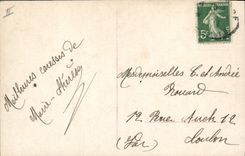 Meilleures caresses de
Marie-Thérèse
5c
Mesdemoiselles C. et André
Rouard
12 Rue 12
(Var) Toulon